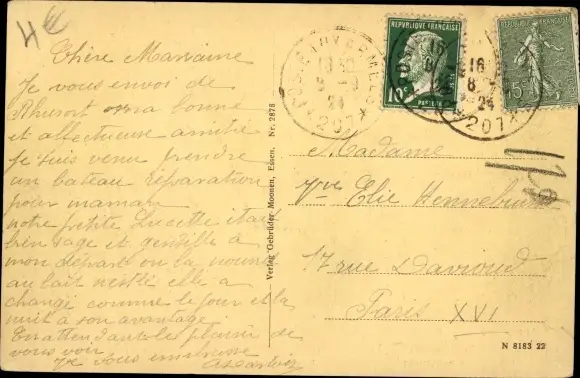 4€
Chère Marraine
Je vous envoi de
Rhurort ma bonne
et affectueuse amitié
je suis venu prendre
un bateau réparation
pour maman
notre petite Lucette était
bien sage et gentille à
mon départ on la nourrit
au lait nestlé elle a
changé comme le jour et la
nuit à son avantage
En attendant le plaisir de
vous voir
je vous embrasse
Verlag Gebrüder Moonen, Essen. Nr. 2876
REPUBLIQUE FRANÇAISE
POSTES
REPUBLIQUE FRANÇAISE
15
16
8
24
207
Madame
Vve Elie Hennebi
17 rue Davioud
Paris XVI
N 8183 22